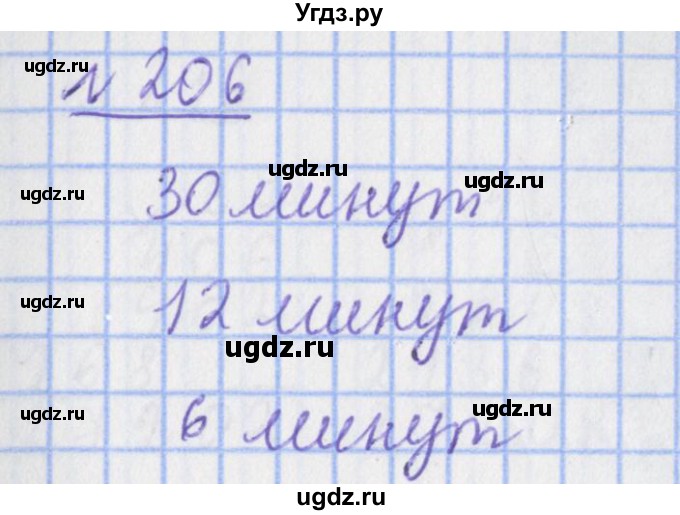 Угдз.ру
ugdz.ru
N 206
ugdz.ru
ugdz.ru
ugdz.ru
30 минут
ugdz.ru
12 минут
ugdz.ru
ugdz.ru
ugdz.ru
6 минут
ugdz.ru